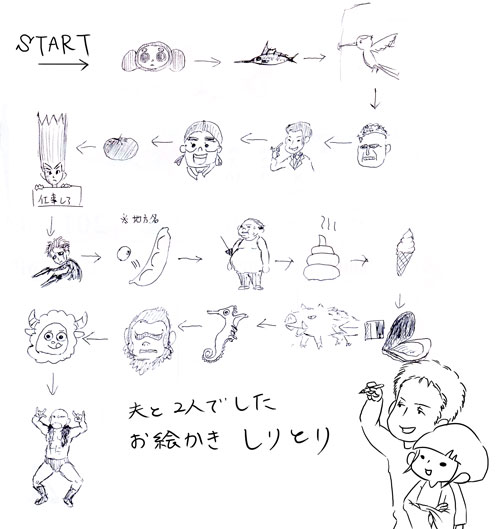 START
仕事して
※地方名
夫と2人でした
お絵かき しりとり